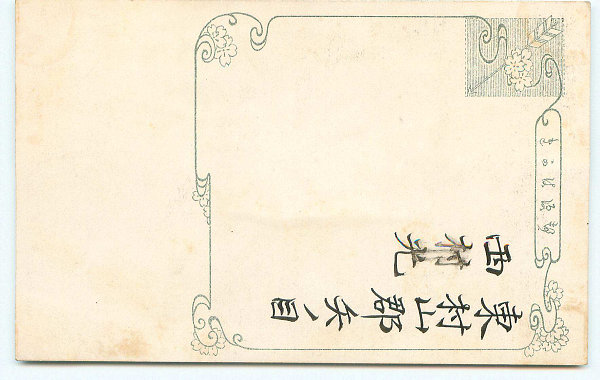 郵便はかき
東村山郡矢ノ目
西村光